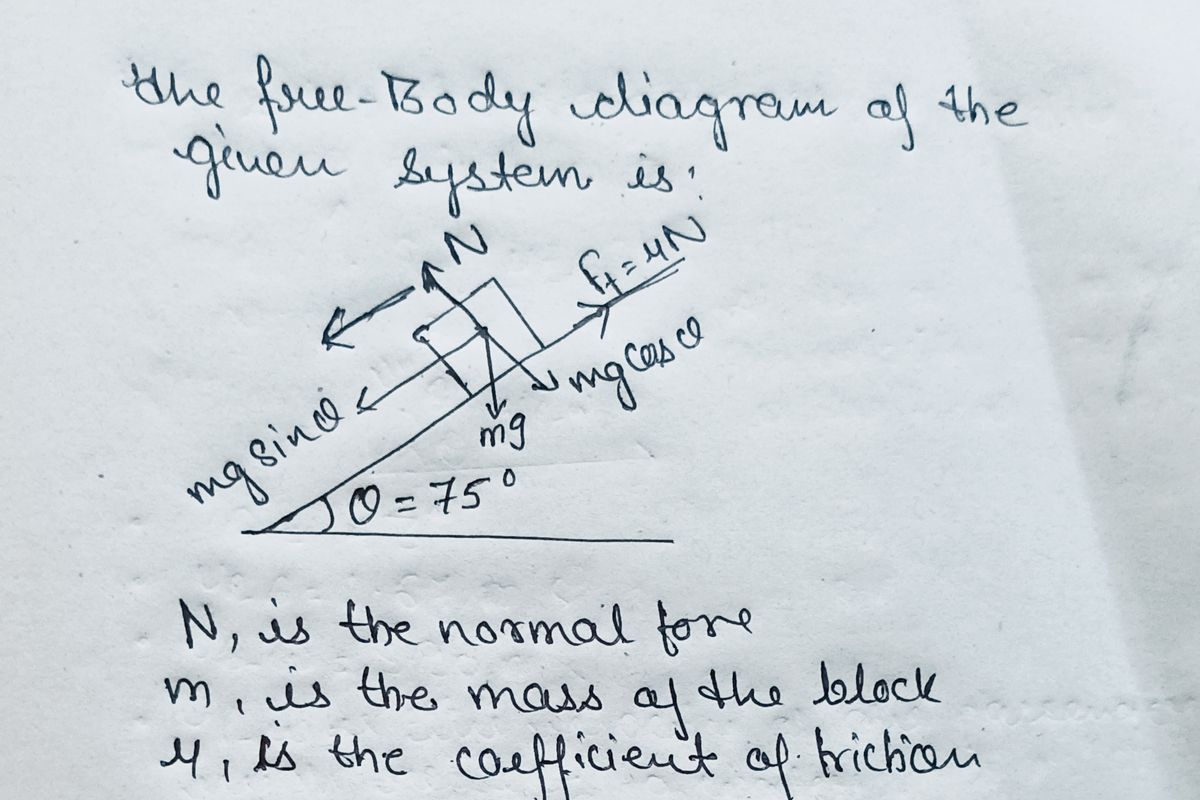 the free-Body diagram of the
given system is:
N
Ff = μN
mg cos θ
mg sin θ
mg
θ = 75°
N, is the normal forne
m, is the mass of the block
μ, is the coefficient of friction